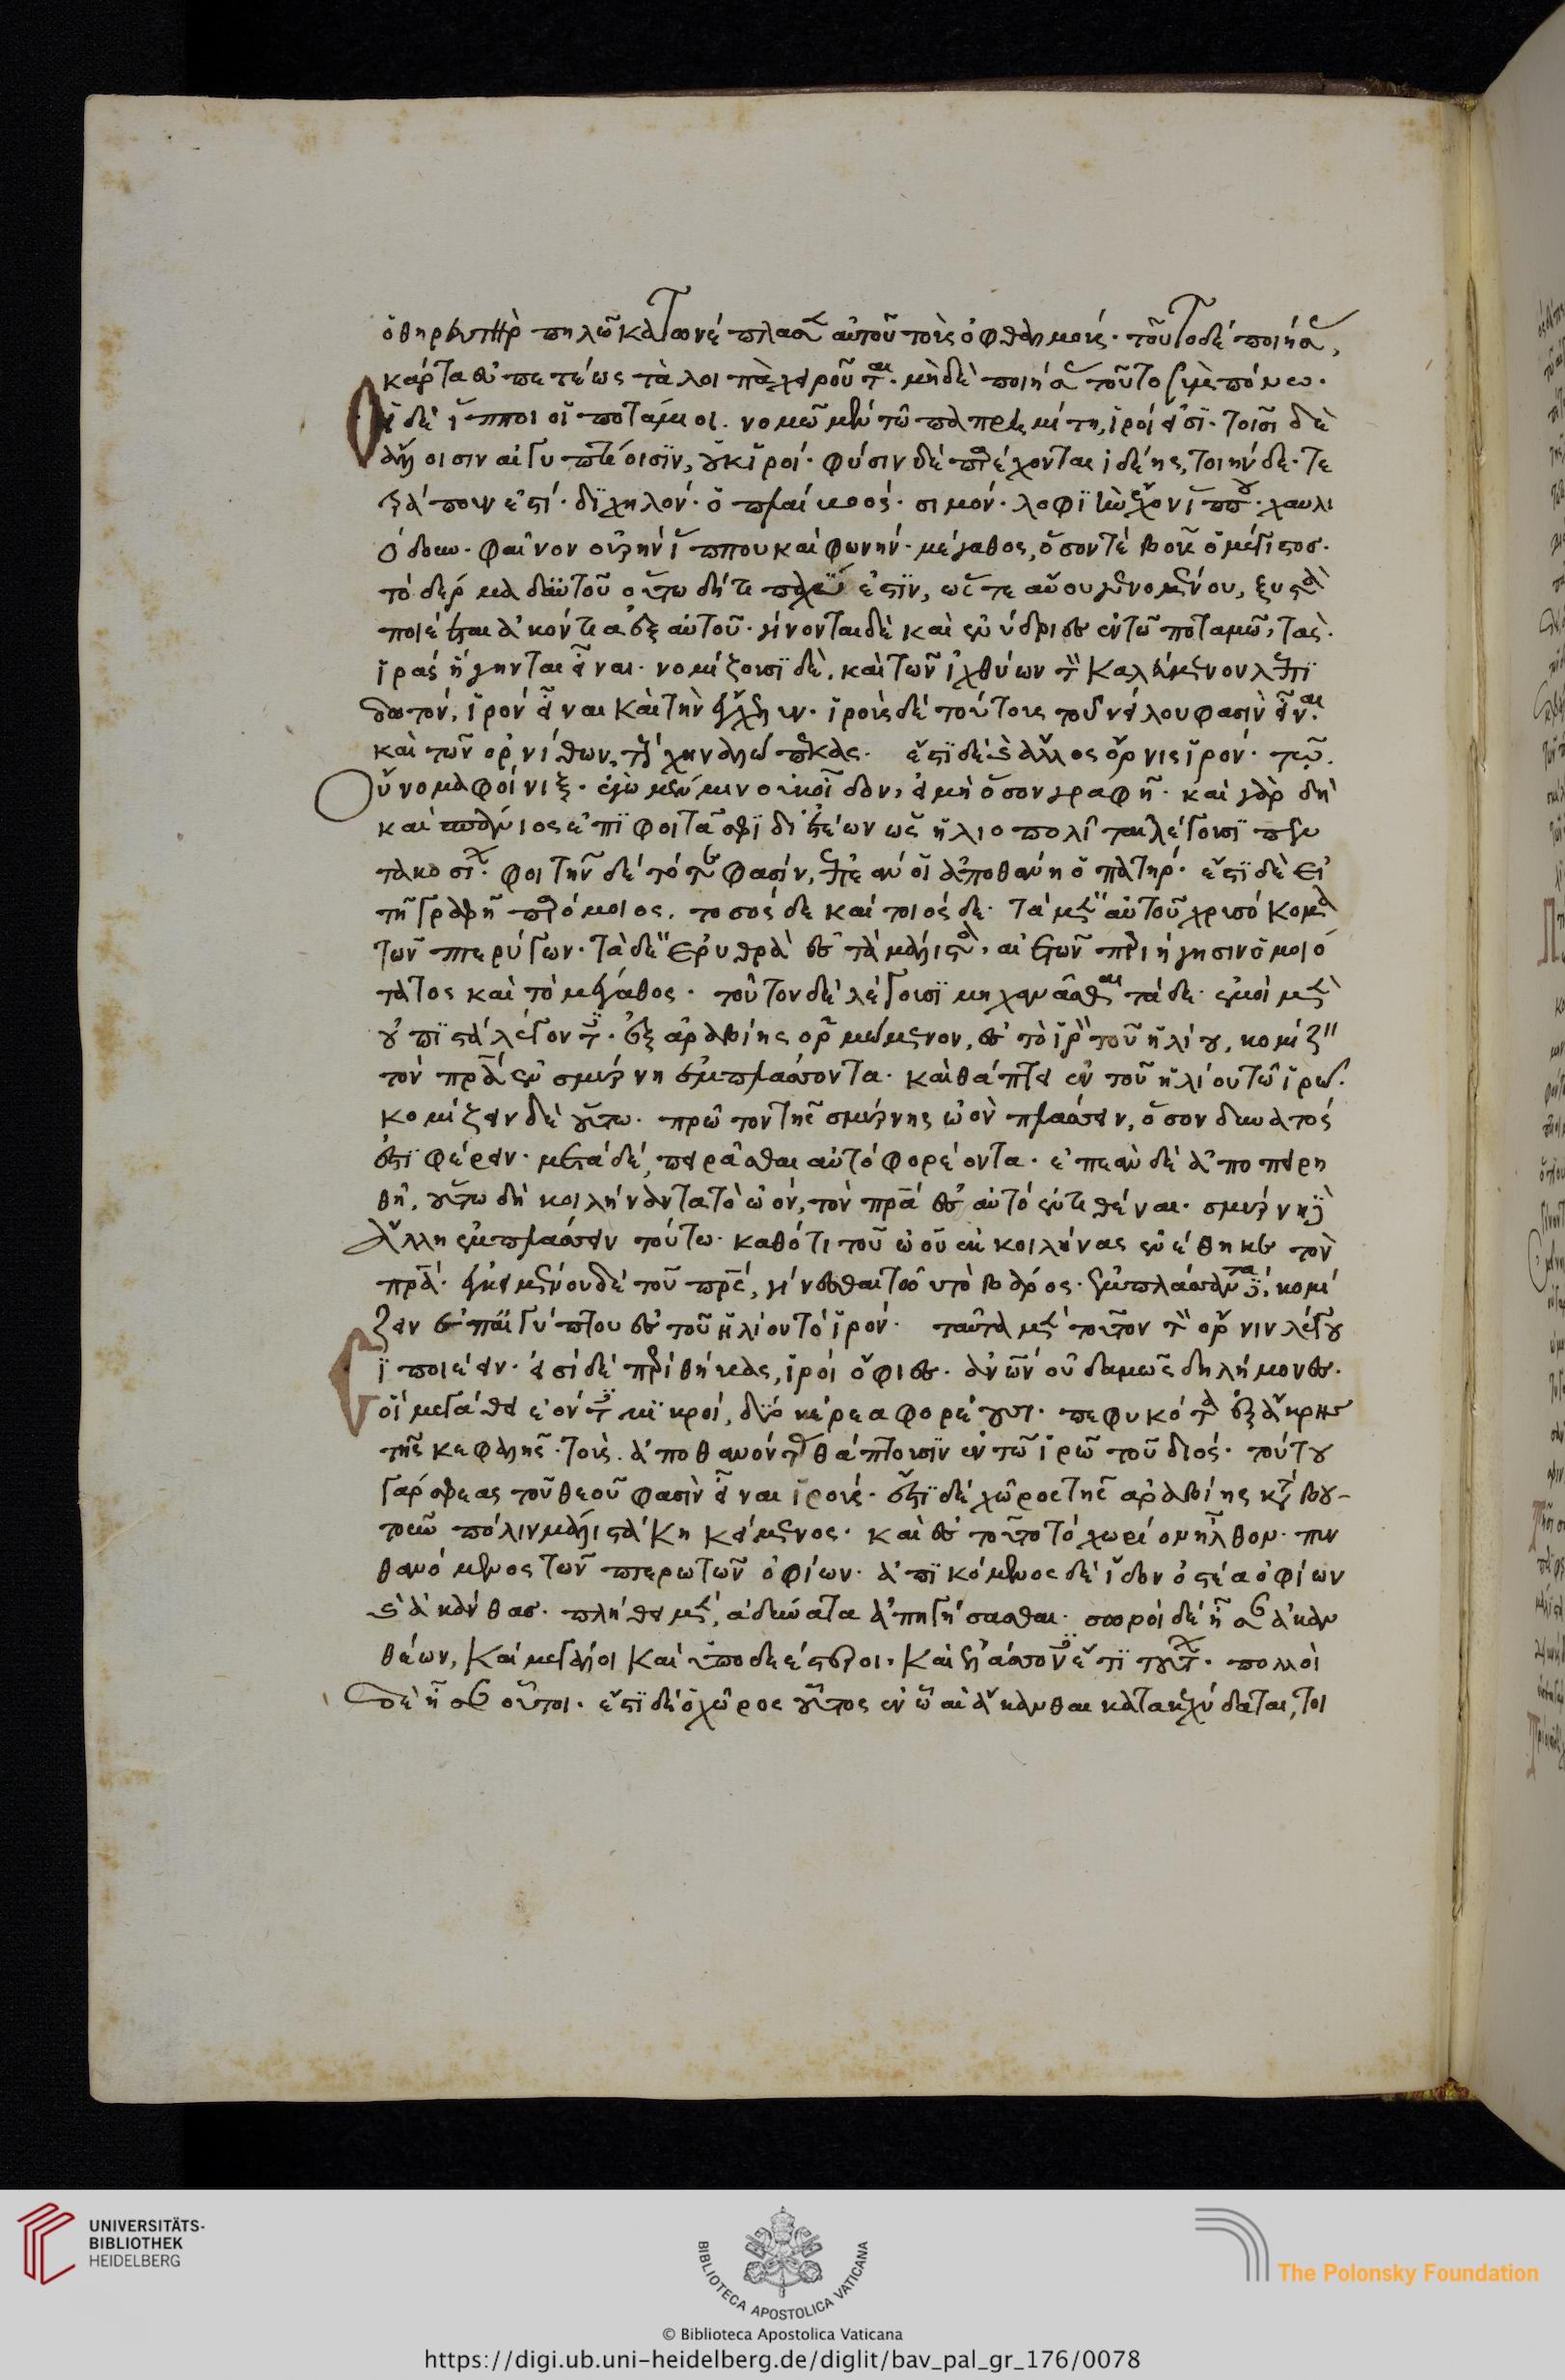 ὁ θηρευτὴρ πηλῶ κατ᾽ ὦν ἔπλασεν αὐτοῦ τοὺς ὀφθαλμούς. τοῦτο δὲ ποιήσας,
κάρτα εὐπετέως τὰ λοιπὰ χειροῦται. μὴ δὲ ποιήσας τοῦτο σὺν πόνω.
Οἱ δὲ ἵπποι οἱ ποτάμιοι. νομῶ μὲν τῶ παπρημίτη, ἱροί εἰσι. τοῖσι δὲ
ἄλλοισιν αἰγυπτίοισιν, οὐκ ἱροί. φύσιν δὲ παρέχονται ἰδέης, τοιήνδε. τε
τράπουν ἐστί. δίχηλον. ὁπλαὶ βοός. σιμόν. λοφιὴν ἔχον ἵππου. χαυλι
όδουν. φαῖνον οὐρὴν ἵππου καὶ φωνήν. μέγαθος, ὅσον τε βοῦς ὁ μέγιστος.
τὸ δέρμα δ᾽ αὐτοῦ οὕτω δή τι παχύ ἐστιν, ὥς τε αὔου γενομένου, ξυστὰ
ποιέεται ἀκόντια ἐξ αὐτοῦ. γίνονται δὲ καὶ ἐνύδριες ἐν τῶ ποταμῶ, τὰς
ἱρὰς ἥγηνται εἶναι. νομίζουσι δὲ, καὶ τῶν ἰχθύων τὸν καλεύμενον λεπι
δωτόν, ἱρόν εἶναι καὶ τὴν ἔγχελυν. ἱροὺς δὲ τούτους τοῦ νείλου φασὶν εἶναι.
καὶ τῶν ὀρνίθων, τοὺς χηναλώπεκας. ἔστι δὲ καὶ ἄλλος ὄρνις ἱρόν. τῶ
Οὔνομα φοίνιξ. ἐγὼ μέν μιν οὐκ εἶδον, εἰ μὴ ὅσον γραφῆ. καὶ γὰρ δὴ
καὶ σπάνιος ἐπιφοιτᾶ σφι δι᾽ ἐτέων ὡς ἡλιοπολῖται λέγουσι πεν
τακοσίων. φοιτῆν δὲ τότε φασίν, ἐπεάν οἱ ἀποθάνη ὁ πατήρ. ἔστι δὲ εἰ
τῆ γραφῆ παρόμοιος. τοσόςδε καὶ τοιόςδε. τὰ μὲν αὐτοῦ χρυσόκομα
τῶν πτερύγων. τὰ δὲ ἐρυθρὰ ἐς τὰ μάλιστα. αἰετῶν περιήγησιν ὁμοιό
τατος καὶ τὸ μέγαθος. τοῦτον δὲ λέγουσι μηχανᾶσθαι τάδε. ἐμοὶ μὲν
οὐ πιστὰ λέγοντες. ἐξ ἀραβίης ὁρμώμενον, ἐς τὸ ἱρὸν τοῦ ἡλίου, κομίζειν
τὸν πρα ἐν σμύρνη ἐμπλάσσοντα. καὶ θάπτειν ἐν τοῦ ἡλίου τῶ ἱρῶ.
κομίζειν δὲ οὕτω. πρῶτον τῆς σμύρνης ὠὸν πλάσσειν, ὅσον δυνατός
ἐστι φέρειν. μετὰ δὲ, πειρᾶσθαι αὐτὸ φορέοντα. ἐπεὰν δὲ ἀποπειρη
θῆ, οὕτω δὴ κοιλήναντα τὸ ὠόν, τὸν πρα ἐς αὐτὸ ἐντιθέναι. σμύρνη δὲ
ἄλλη ἐμπλάσσειν τοῦτο. καθότι τοῦ ὠοῦ ἐκκοιλήνας ἐνέθηκε τὸν
πρα. ἐγκειμένου δὲ τοῦ πρς, γίνεσθαι τὠυτὸ βάρος. ἐμπλάσαντα δὲ, κομί
ζειν ἐπ᾽ αἰγύπτου ἐς τοῦ ἡλίου τὸ ἱρόν. ταῦτα μὲν τοῦτον τὸν ὄρνιν λέγου
σι ποιέειν. εἰσὶ δὲ περὶ θήβας, ἱροὶ ὄφιες. ἀνων οὐδαμῶς δηλήμονες.
οἱ μεγάθει ἐόντες μικροί, δύο κέρεα φορέουσι. πεφυκότα ἐξ ἄκρης
τῆς κεφαλῆς. τοὺς ἀποθανόντας θάπτουσιν ἐν τῶ ἱρῶ τοῦ διός. τούτου
γάρ σφεας τοῦ θεοῦ φασὶν εἶναι ἱρούς. ἔστι δὲ χῶρος τῆς ἀραβίης κατὰ βου-
τοῦν πόλιν μάλιστά κη κείμενος. καὶ ἐς τοῦτο τὸ χωρίον ἦλθον. πυν
θανόμενος τῶν πτερωτῶν ὀφίων. ἀπικόμενος δὲ ἴδον ὀστέα ὀφίων
καὶ ἀκάνθας. πλήθει μὲν, ἀδύνατα ἀπηγήσασθαι. σωροὶ δὲ ἦσαν ἀκαν
θέων, καὶ μεγάλοι καὶ ὑποδεέστεροι. καὶ ἐλάσσονες ἔτι τούτων. πολλοὶ
δὲ ἦσαν οὗτοι. ἔστι δὲ ὁ χῶρος οὗτος ἐν ὧ αἱ ἄκανθαι κατακεχύδαται, τοι
UNIVERSITÄTS-
BIBLIOTHEK
HEIDELBERG
BIBLIOTECA APOSTOLICA VATICANA
The Polonsky Foundation
© Biblioteca Apostolica Vaticana
https://digi.ub.uni-heidelberg.de/diglit/bav_pal_gr_176/0078